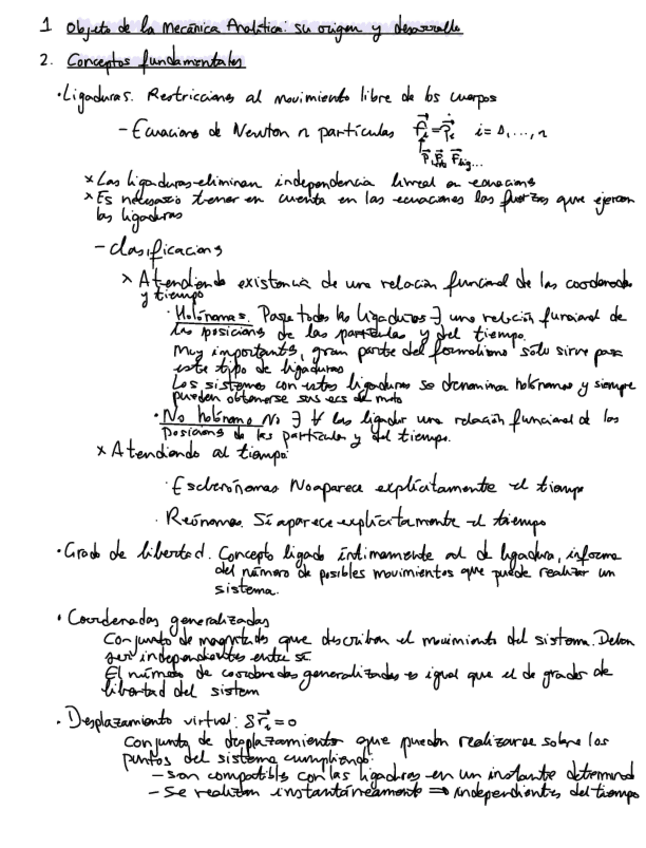 1 Objeto de la Mecánica Analítica: su origen y desarrollo
2. Conceptos fundamentales
· Ligaduras. Restricciones al movimiento libre de los cuerpos
- Ecuaciones de Newton n partículas f⃗ᵢ = ṗ⃗ᵢ i = 1, ..., n
× Las ligaduras eliminan independencia lineal en ecuacions
× Es necesario tener en cuenta en las ecuaciones las fuerzas que ejercen
las ligaduras
- Clasificacions
× Atendiendo existencia de una relación funcional de las coordenadas
y tiempo
· Holónomas. Para todas las ligaduras ∃ una relación funcional de
las posicions de las partículas y del tiempo.
Muy importants, gran parte del formalismo sólo sirve para
este tipo de ligaduras
Los sistemas con estas ligaduras se denominan holónomos y siempre
pueden obtenerse sus ecs de
· No holónomo No ∃ ∀ las ligadur una relación funcional de las
posicions de las partículas y del tiempo.
× Atendiendo al tiempo:
· Esclerónomas No aparece explícitamente el tiempo
· Reónomas. Sí aparece explícitamente el tiempo
· Grado de libertad. Concepto ligado íntimamente al de ligadura, informa
del número de posibles movimientos que puede realizar un
sistema.
· Coordenadas generalizadas
Conjunto de magnitudes que describen el movimiento del sistema. Deben
ser independientes entre sí.
El número de coordenadas generalizadas es igual que el de grados de
libertad del sistem
· Desplazamiento virtual: δr⃗ᵢ = 0
Conjunto de desplazamiento que pueden realizarse sobre los
puntos del sistema cumpliendo:
- son compatibles con las ligaduras en un instante determind
- Se realizan instantáneamente ⇒ independientes del tiempo